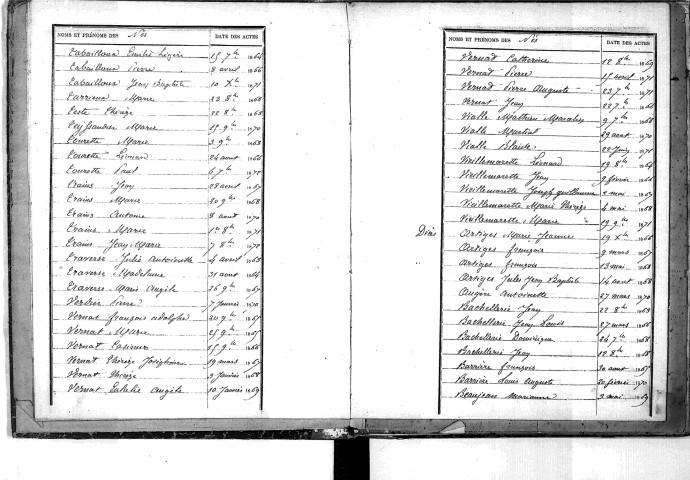 NOMS ET PRÉNOMS DES Nés DATE DES ACTES
Tabailloux Emilie 15 7bre 1864
Tabailloux Pierre 8 avril 1866
Tabailloux Jean Baptiste 10 Xbre 1871
Marie 23 8bre 1868
Teste Thérèze 22 8bre 1868
Teyssandier Marie 15 9bre 1870
Tourette Marie 3 9bre 1868
Tourette Léonard 24 aout 1866
Tourette Paul 6 7bre 1872
Trains Jean 28 avril 1867
Trains Marie 20 9bre 1868
Trains Antoine 8 aout 1870
Trains Marie 1er 8bre 1871
Trains Jean Marie 7 8bre 1872
Traverse Julie Antoinette 4 avril 1863
Traverse Madeleine 31 aout 1864
Traverse Marie Angèle 26 9bre 1867
Verdier Pierre 7 Janvier 1870
Vernat françois adolphe 20 9bre 1867
Vernat Marie 25 9bre 1867
Vernat Casimir 15 9bre 1866
Vernat Thérèze Joséphine 19 mars 1867
Vernat Thérèze 9 Janvier 1868
Vernat Eulalie Angèle 10 Janvier 1869
NOMS ET PRÉNOMS DES Nés DATE DES ACTES
Vernat Catherine 12 8bre 1869
Vernat Pierre 15 avril 1871
Vernat Pierre Auguste 23 7bre 1871
Vernat Jean 22 7bre 1866
Vialle Mathieu 9 7bre 1868
Vialle Martial 29 aout 1870
Vialle Blaise 22 1871
Vieillemarette Léonard 19 8bre 1864
Vieillemarette Jean 9 février 1866
Vieillemarette Joseph guillaume 2 mai 1867
Vieillemarette Marie Thérèze 4 mai 1868
Vieillemarette Marie 19 9bre 1871
Diés Artiges Marie Jeanne 19 Xbre 1866
Artiges françois 2 mars 1867
Artiges françois 13 mai 1868
Artiges Jules Jean Baptiste 14 aout 1868
Augère Antoinette 27 mars 1870
Bachellerie Jean 22 8bre 1863
Bachellerie Jean Louis 27 mars 1866
Bachellerie Dominique 24 7bre 1868
Bachellerie Jean 12 8bre 1868
Barrière françois 20 aout 1867
Barrière Louis Auguste 20 février 1870
Beaujean Marianne 2 mai 1863